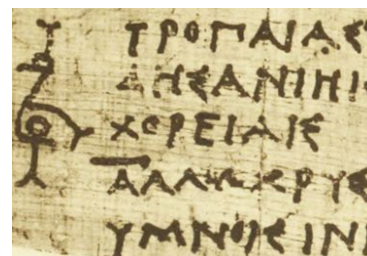 ΤΡΟΠΑΙΑΣ
ΔΗΣΑΝΙΗΙ
ΧΟΡΕΙΑΙΣ
ΑΛΛΩΧΡΥΣ
ΥΜΝΟΙΣΙΝΙ